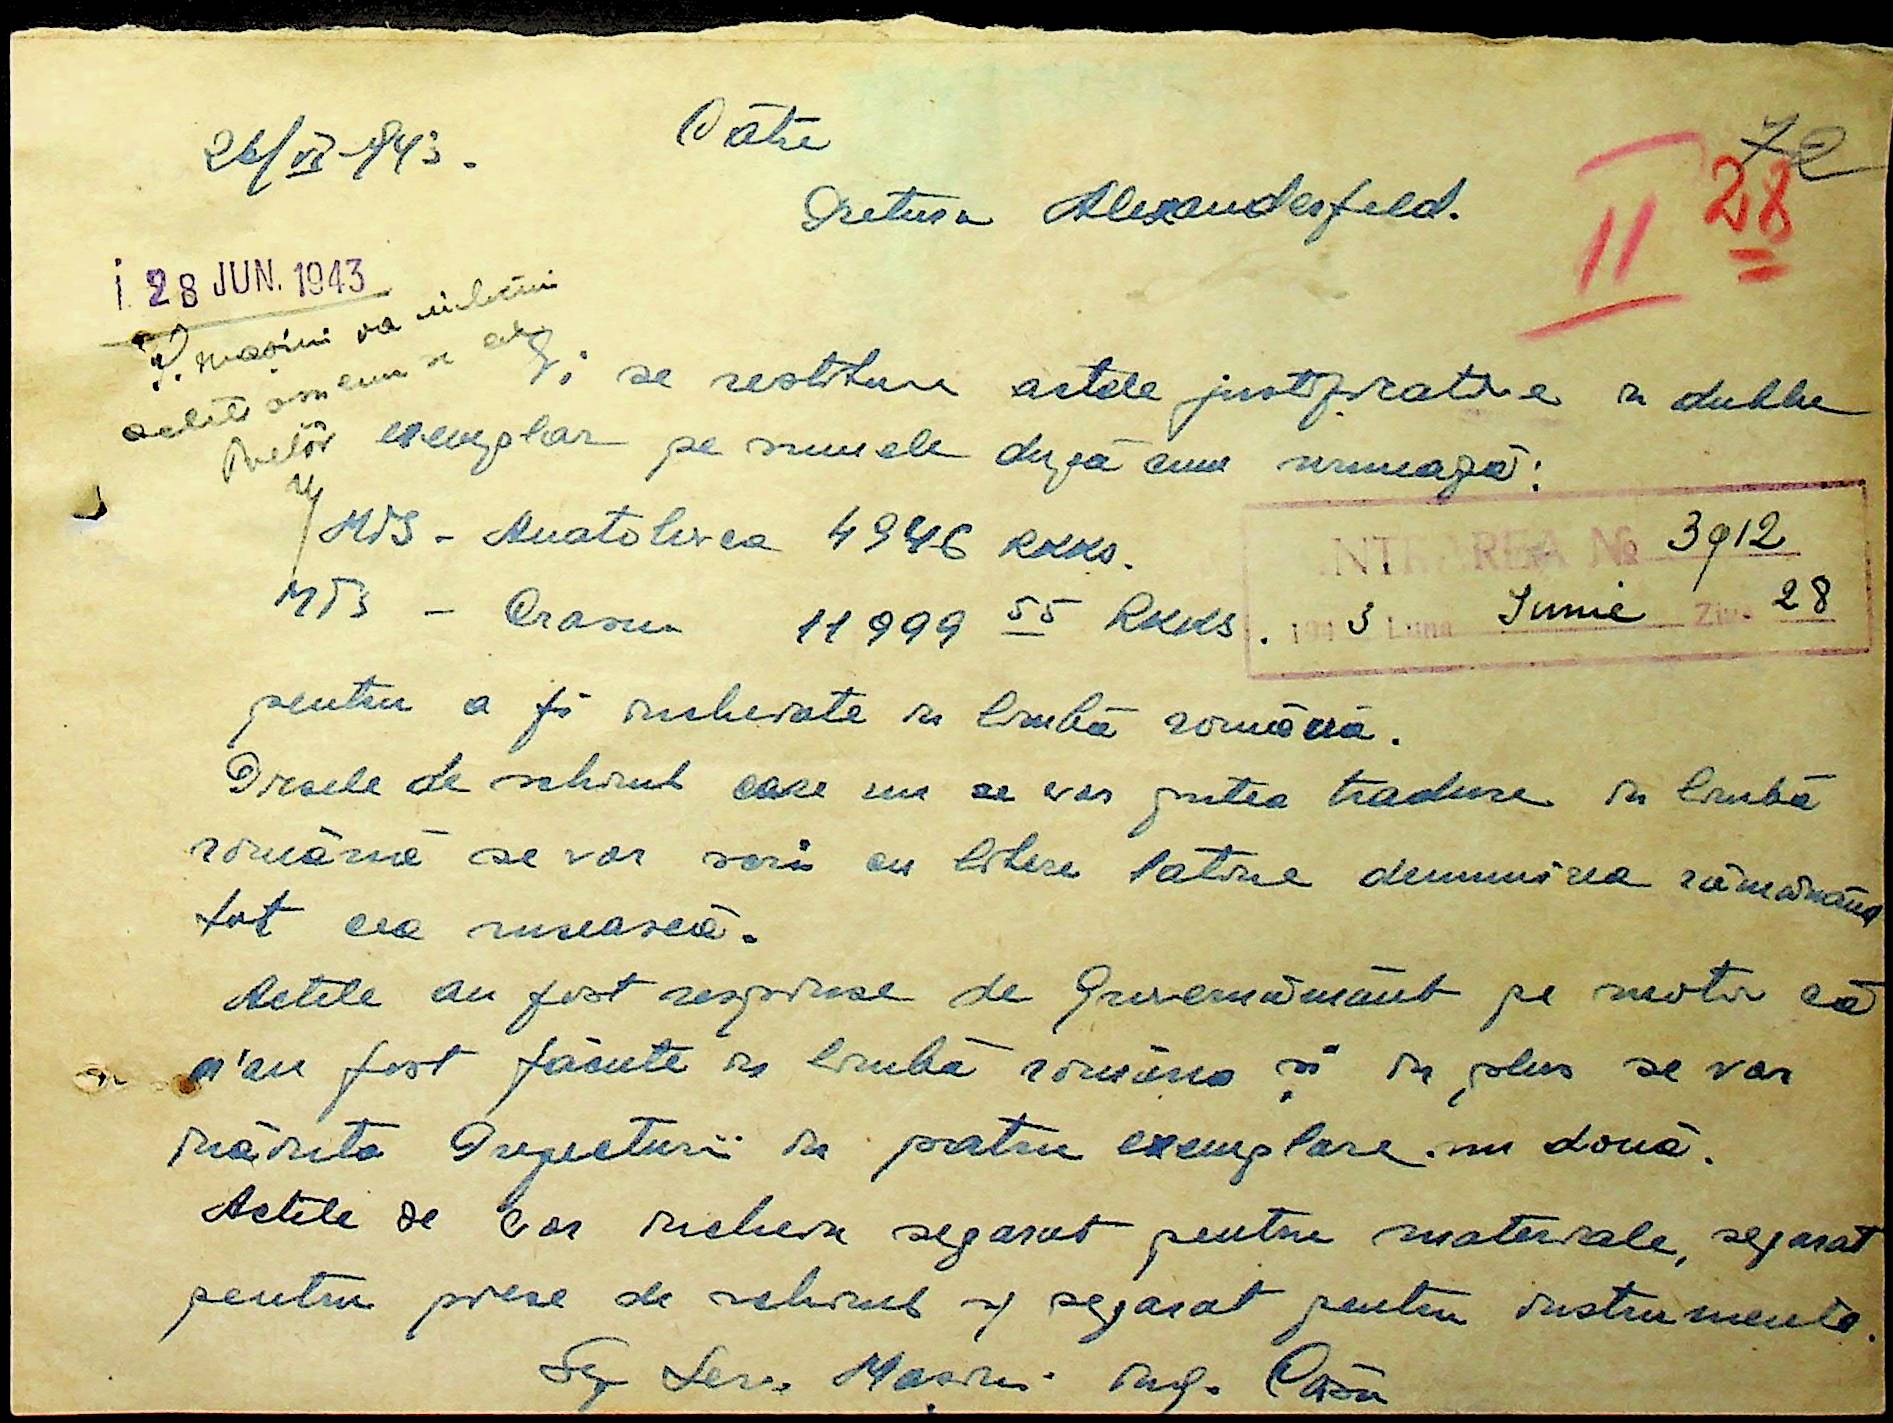 26/VI 943.
Către
Pretura Alexanderfeld.
72
II 28
28 JUN. 1943
S. mașini va
Vi se restitue actele justificative in dublu
exemplar pe sumele după cum urmează:
MTS - Anatolievca 4946 RKKS.
MTS - Crasna 11999 55 RKKS.
INTRAREA № 3912
1943 Luna Iunie Ziua 28
pentru a fi incheiate in limbă română.
Piesele de schimb care nu se vor putea traduce in limbă
română se vor scrie cu litere latine denumirea rămânând
tot cea rusească.
Actele au fost respinse de Guvernământ pe motiv că
n'au fost făcute in limbă româna și in plus se vor
inăinta Prefecturii in patru exemplare nu două.
Actele se vor incheia separat pentru materiale, separat
pentru piese de schimb și separat pentru instrumente.
Șef Serv. Mașini ing.